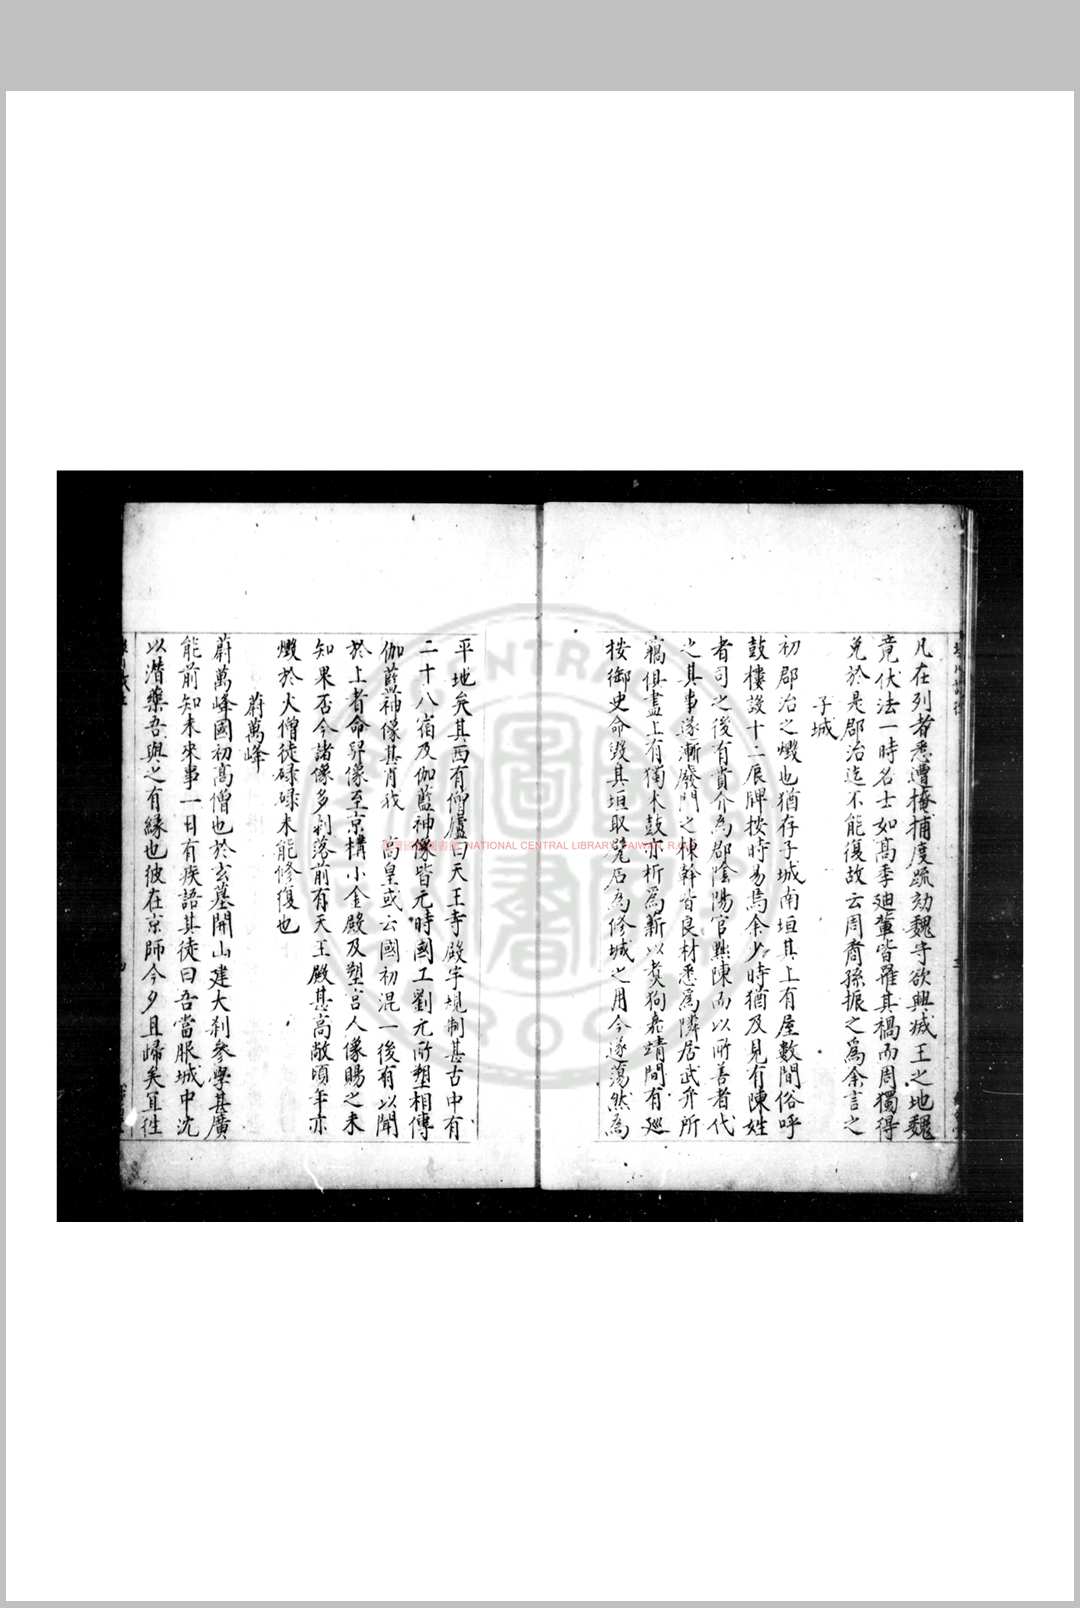 凡在列者悉遭掩捕度疏劾魏守欲興滅王之地魏
竟伏法一時名士如高季迪輩皆羅其禍而周獨得
免於是郡治迄不能復故云周裔孫振之為余言之
子城
初郡治之燬也猶存子城南垣其上有屋數間俗呼
鼓樓設十二辰牌按時易焉余少時猶及見有陳姓
者司之後有貴介為郡陰陽官黜陳而以所善者代
之其事遂漸廢門之棟幹皆良材悉為隣居武弁所
竊俱盡上有獨木鼓亦析為薪以煑狗嘉靖間有廵
按御史命毀其垣取甓石為修城之用今遂蕩然為
平地矣其西有仰廬曰天王寺殿宇規制甚古中有
二十八宿及伽藍神像皆元時國工劉元所塑相傳
伽藍神像甚肖我 高皇或云國初混一後有以聞
於上者命舁像至京構小金殿及塑宮人像賜之未
知果否今諸像多剥落前有天王殿甚高敞頃年亦
燬於火僧徒碌碌未能修復也
蔚萬峰
蔚萬峰國初高僧也於玄墓開山建大刹參學甚廣
能前知未來事一日有疾語其徒曰吾當服城中沈
以潛藥吾與之有緣也彼在京師今夕且歸矣宜徃
NATIONAL CENTRAL LIBRARY, TAIWAN, R.O.C